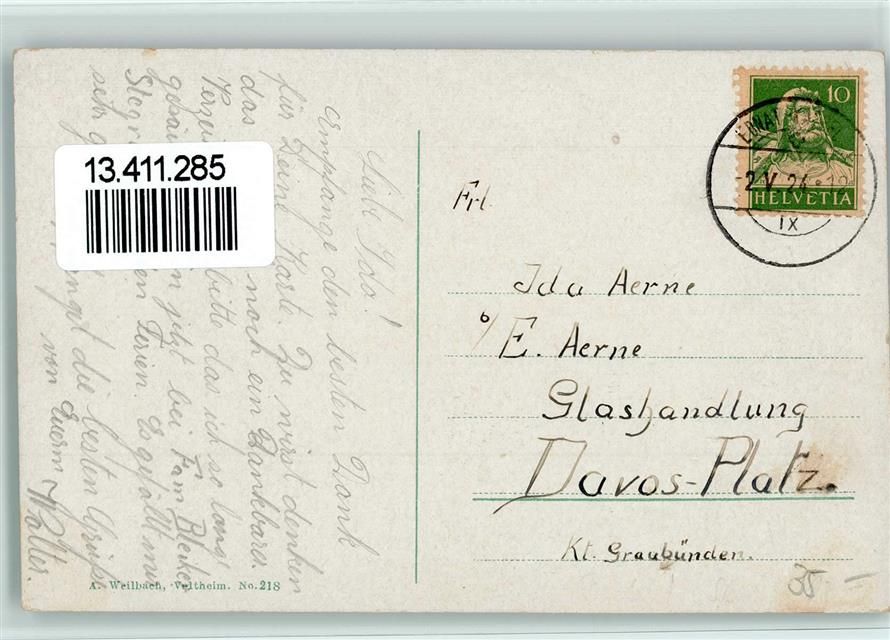 Liebe Ida!
Empfange den besten Dank
für Deine Karte. Du wirst denken
das noch ein Dankbarer.
bitte das ich so lang
jetzt bei Fam. Bleiker
Ferien. Es gefällt mir
sehr
die besten Grüße
von Euerm Walter.
13.411.285
A. Weilbach, Veltheim. No. 218
10
HELVETIA
EBNAT
-2.V.24
IX
Frl.
Ida Aerne
b/ E. Aerne
Glashandlung
Davos-Platz.
Kt. Graubünden.